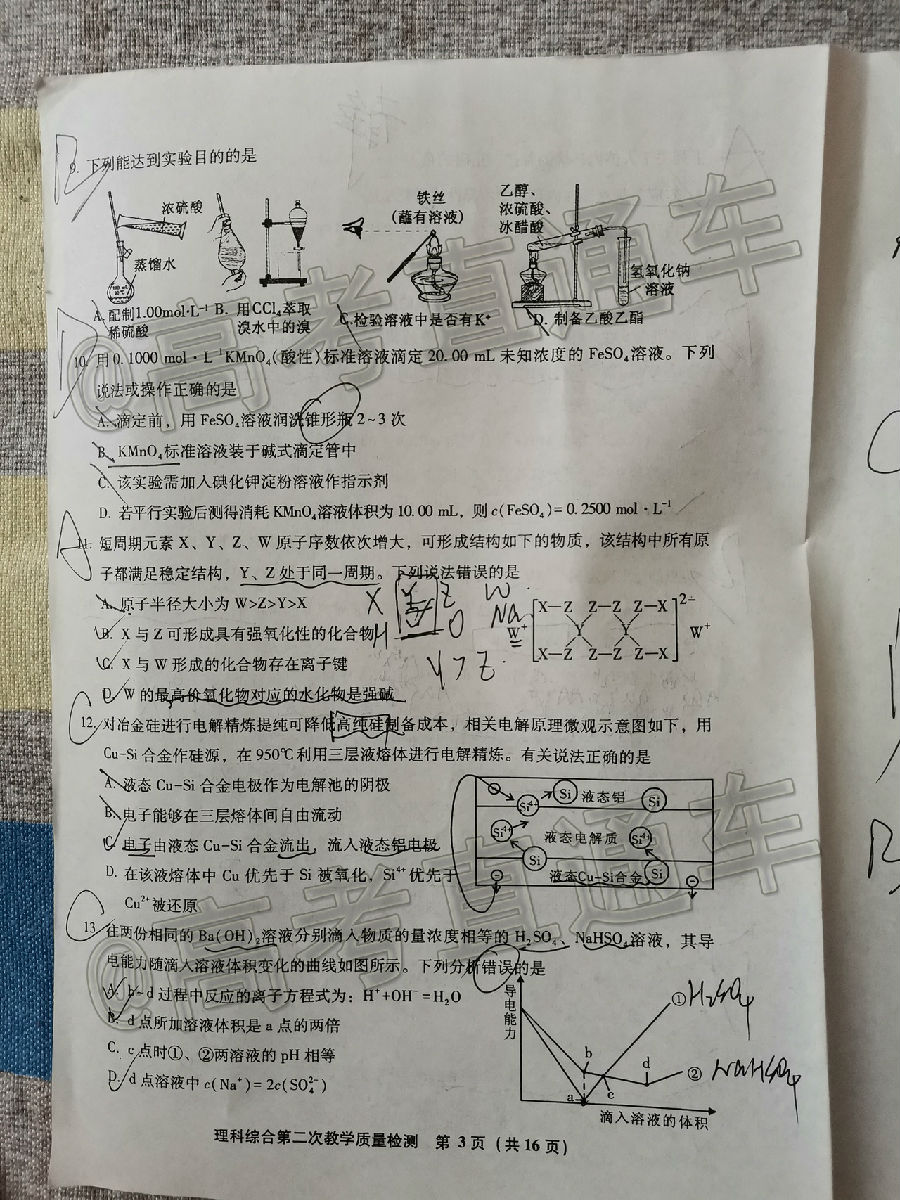 9. 下列能达到实验目的的是
浓硫酸
蒸馏水
铁丝
(蘸有溶液)
乙醇、
浓硫酸、
冰醋酸
氢氧化钠
溶液
A. 配制1.00mol·L⁻¹
稀硫酸
B. 用CCl₄萃取
溴水中的溴
C.检验溶液中是否有K⁺
D. 制备乙酸乙酯
10. 用0.1000 mol·L⁻¹KMnO₄(酸性)标准溶液滴定 20.00 mL 未知浓度的 FeSO₄溶液。下列
说法或操作正确的是
A. 滴定前，用 FeSO₄溶液润洗锥形瓶 2~3 次
B. KMnO₄标准溶液装于碱式滴定管中
C. 该实验需加入碘化钾淀粉溶液作指示剂
D. 若平行实验后测得消耗 KMnO₄溶液体积为 10.00 mL，则 c(FeSO₄)=0.2500 mol·L⁻¹
11. 短周期元素 X、Y、Z、W 原子序数依次增大，可形成结构如下的物质，该结构中所有原
子都满足稳定结构，Y、Z 处于同一周期。下列说法错误的是
A. 原子半径大小为 W>Z>Y>X
B. X 与 Z 可形成具有强氧化性的化合物
C. X 与 W 形成的化合物存在离子键
D. W 的最高价氧化物对应的水化物是强碱
X Y Z W
H O Na
Y>Z
W⁺
X—Z Z—Z Z—X
Y Y
X—Z Z—Z Z—X
2−
W⁺
12. 对冶金硅进行电解精炼提纯可降低高纯硅制备成本，相关电解原理微观示意图如下，用
Cu-Si 合金作硅源，在 950℃利用三层液熔体进行电解精炼。有关说法正确的是
A. 液态 Cu-Si 合金电极作为电解池的阴极
B. 电子能够在三层熔体间自由流动
C. 电子由液态 Cu-Si 合金流出，流入液态铝电极
D. 在该液熔体中 Cu 优先于 Si 被氧化，Si⁴⁺优先于
Cu²⁺被还原
Si⁴⁺ Si 液态铝 Si
Si⁴⁺ 液态电解质 Si⁴⁺
Si 液态Cu-Si合金 Si
13. 往两份相同的 Ba(OH)₂溶液分别滴入物质的量浓度相等的 H₂SO₄、NaHSO₄溶液，其导
电能力随滴入溶液体积变化的曲线如图所示。下列分析错误的是
A. b~d 过程中反应的离子方程式为：H⁺+OH⁻=H₂O
B. d 点所加溶液体积是 a 点的两倍
C. c 点时①、②两溶液的 pH 相等
D. d 点溶液中 c(Na⁺)=2c(SO₄²⁻)
导电能力
① H₂SO₄
② NaHSO₄
a b c d
滴入溶液的体积
理科综合第二次教学质量检测 第 3 页 (共 16 页)
@高考直通车
@高考直通车